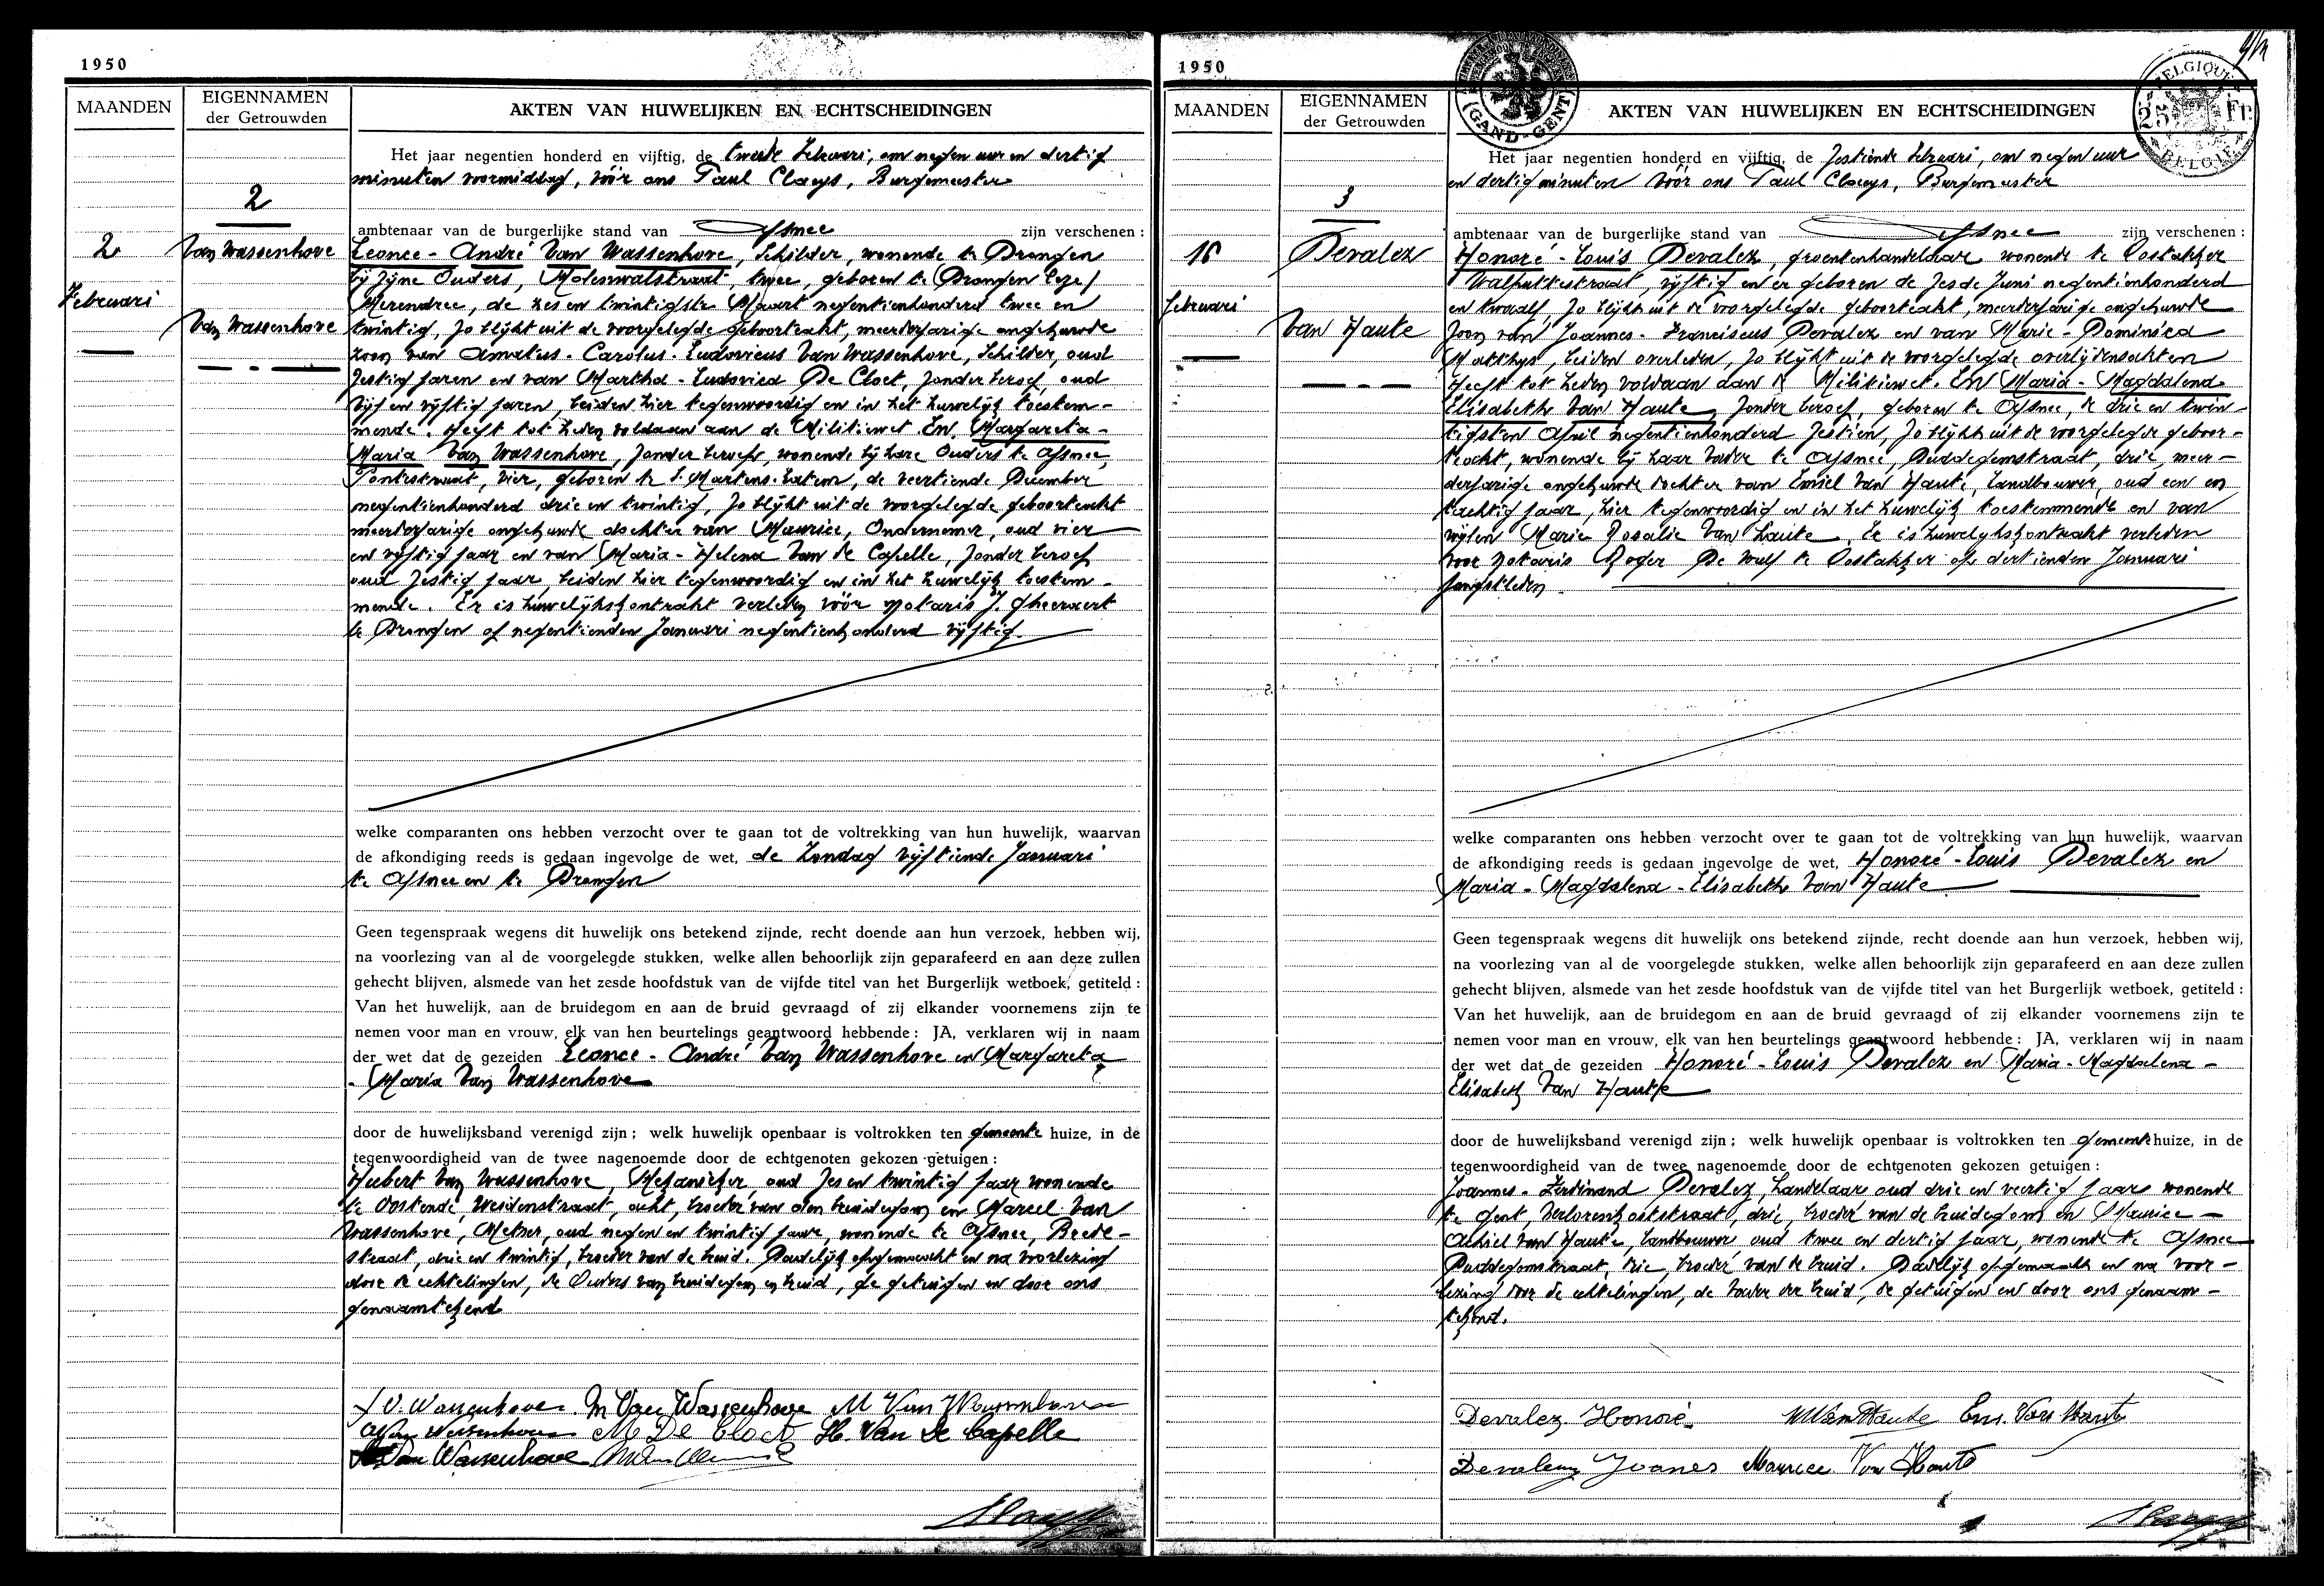 1950
MAANDEN
EIGENNAMEN
der Getrouwden
AKTEN VAN HUWELIJKEN EN ECHTSCHEIDINGEN
Het jaar negentien honderd en vijftig, de tweede Februari, om negen uur en dertig
minuten voormiddag, vóór ons Paul Claeys, Burgemeester
2
ambtenaar van de burgerlijke stand van Afsnee zijn verschenen :
2
Februari
Van Wassenhove
Van Wassenhove
Leonce - André Van Wassenhove, Schilder, wonende te Drongen
bij zijne Ouders, Molenwalstraat, twee, geboren te Drongen
Merendree, de zes en twintigste Maart negentienhonderd twee en
twintig, zo blijkt uit de voorgelegde geboorteakt, meerderjarige ongehuwde
zoon van Amatus - Carolus - Ludovicus Van Wassenhove, Schilder, oud
zestig jaren en van Martha - Ludovica De Cloet, zonder beroep, oud
vijf en vijftig jaren, beiden hier tegenwoordig en in het huwelijk toestem-
mende. Heeft tot heden voldaan aan de Militiewet. En Margareta -
Maria Van Wassenhove, zonder beroep, wonende bij hare Ouders te Afsnee,
Pontstraat, vier, geboren te S. Martens-Latem, de veertiende December
negentienhonderd drie en twintig, zo blijkt uit de voorgelegde geboorteakt
meerderjarige ongehuwde dochter van Maurice, Ondernemer, oud vier
en vijftig jaar en van Maria - Helena Van de Capelle, zonder beroep
oud zestig jaar, beiden hier tegenwoordig en in het huwelijk toestem -
mende. Er is huwelijkskontrakt verleden vóór notaris J. Gheeraert
te Drongen op negentienden Januari negentienhonderd vijftig.
welke comparanten ons hebben verzocht over te gaan tot de voltrekking van hun huwelijk, waarvan
de afkondiging reeds is gedaan ingevolge de wet, de Zondag vijftiende Januari
te Afsnee en te Drongen
Geen tegenspraak wegens dit huwelijk ons betekend zijnde, recht doende aan hun verzoek, hebben wij,
na voorlezing van al de voorgelegde stukken, welke allen behoorlijk zijn geparafeerd en aan deze zullen
gehecht blijven, alsmede van het zesde hoofdstuk van de vijfde titel van het Burgerlijk wetboek, getiteld :
Van het huwelijk, aan de bruidegom en aan de bruid gevraagd of zij elkander voornemens zijn te
nemen voor man en vrouw, elk van hen beurtelings geantwoord hebbende : JA, verklaren wij in naam
der wet dat de gezeiden Leonce - André Van Wassenhove en Margareta
- Maria Van Wassenhove
door de huwelijksband verenigd zijn ; welk huwelijk openbaar is voltrokken ten gemeente huize, in de
tegenwoordigheid van de twee nagenoemde door de echtgenoten gekozen getuigen :
Hubert Van Wassenhove, Mekanieker, oud zes en twintig jaar wonende
te Oostende, Weidenstraat, acht, broeder van den bruidegom en Marcel Van
Wassenhove, Metser, oud negen en twintig jaar, wonende te Afsnee, Beede -
straat, drie en twintig, broeder van de bruid. Dadelijk opgemaakt en na voorlezing
door de echtelingen, de Ouders van bruidegom en bruid, de getuigen en door ons
genaamtekend
L V. Wassenhove. M Van Wassenhove M Van Wassenhove
A Van Wassenhove M De Cloet H. Van De Capelle
Van Wassenhove
1950
GAND-GENT
BELGIQUE
25 Fr.
BELGIE
MAANDEN
EIGENNAMEN
der Getrouwden
AKTEN VAN HUWELIJKEN EN ECHTSCHEIDINGEN
Het jaar negentien honderd en vijftig, de zestiende Februari, om negen uur
en dertig minuten vóór ons Paul Claeys, Burgemeester
3
ambtenaar van de burgerlijke stand van Afsnee zijn verschenen :
16
Februari
Devalez
Van Haute
Honoré - Louis Devalez, groentenhandelaar wonende te Oostakker
Walputtestraat, vijftig en er geboren de zesde Juni negentienhonderd
en twaalf, zo blijkt uit de voorgelegde geboorteakt, meerderjarige ongehuwde
zoon van Joannes - Franciscus Devalez en van Marie - Dominica
Matthys, beiden overleden, zo blijkt uit de voorgelegde overlijdensakten
Heeft tot heden voldaan aan de Militiewet. En Maria - Magdalena
Elisabeth Van Haute, zonder beroep, geboren te Afsnee, de drie en twin -
tigsten April negentienhonderd zestien, zo blijkt uit de voorgelegde geboor -
teakt, wonende bij haar vader te Afsnee, Duddegemstraat, drie, meer -
derjarige ongehuwde dochter van Emiel Van Haute, landbouwer, oud een en
tachtig jaar, hier tegenwoordig en in het huwelijk toestemmende en van
wijlen Marie Rosalie Van Laute. Er is huwelijkskontrakt verleden
voor notaris Roger De Wulf te Oostakker op dertienden Januari
jongstleden.
welke comparanten ons hebben verzocht over te gaan tot de voltrekking van hun huwelijk, waarvan
de afkondiging reeds is gedaan ingevolge de wet, Honoré - Louis Devalez en
Maria - Magdalena - Elisabeth Van Haute
Geen tegenspraak wegens dit huwelijk ons betekend zijnde, recht doende aan hun verzoek, hebben wij,
na voorlezing van al de voorgelegde stukken, welke allen behoorlijk zijn geparafeerd en aan deze zullen
gehecht blijven, alsmede van het zesde hoofdstuk van de vijfde titel van het Burgerlijk wetboek, getiteld :
Van het huwelijk, aan de bruidegom en aan de bruid gevraagd of zij elkander voornemens zijn te
nemen voor man en vrouw, elk van hen beurtelings geantwoord hebbende : JA, verklaren wij in naam
der wet dat de gezeiden Honoré - Louis Devalez en Maria - Magdalena -
Elisabeth Van Haute
door de huwelijksband verenigd zijn ; welk huwelijk openbaar is voltrokken ten gemeente huize, in de
tegenwoordigheid van de twee nagenoemde door de echtgenoten gekozen getuigen :
Joannes - Ferdinand Devalez, handelaar oud drie en veertig jaar wonende
te Gent, Verlorenkoststraat, drie, broeder van de bruidegom en Maurice -
Achiel Van Haute, landbouwer oud twee en dertig jaar, wonende te Afsnee
Duddegemstraat, drie, broeder van de bruid. Dadelijk opgemaakt en na voor -
lezing door de echtelingen, de vader der bruid, de getuigen en door ons genaam -
tekend.
Devalez Honoré. M Van Haute Em. Van Haute
Devalez Joanes Maurice Van Haute